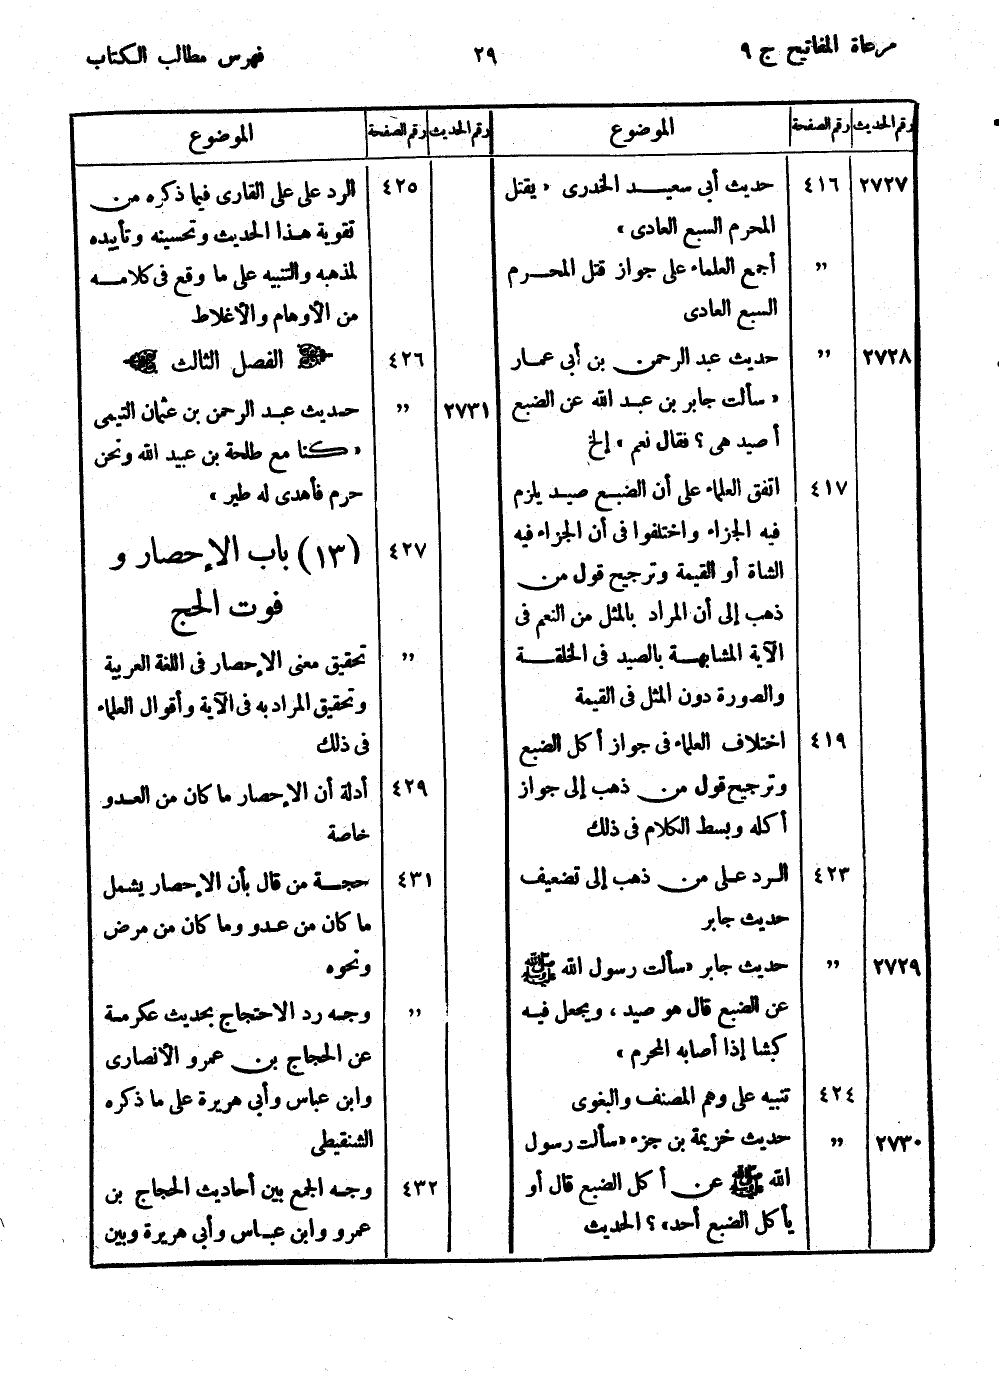 مرعاة المفاتيح ج ٩
٢٩
فهرس مطالب الكتاب
رقم الحديث رقم الصفحة الموضوع
٢٧٢٧ ٤١٦ حديث أبى سعيد الخدرى « يقتل
المحرم السبع العادى »
” أجمع العلماء على جواز قتل المحرم
السبع العادى
٢٧٢٨ ” حديث عبد الرحمن بن أبى عمار
« سألت جابر بن عبد الله عن الضبع
أصيد هى ؟ فقال نعم » إلخ
٤١٧ اتفق العلماء على أن الضبع صيد يلزم
فيه الجزاء واختلفوا فى أن الجزاء فيه
الشاة أو القيمة وترجيح قول من
ذهب إلى أن المراد بالمثل من النعم فى
الآية المشابهة بالصيد فى الخلقة
والصورة دون المثل فى القيمة
٤١٩ اختلاف العلماء فى جواز أكل الضبع
وترجيح قول من ذهب إلى جواز
أكله وبسط الكلام فى ذلك
٤٢٣ الرد على من ذهب إلى تضعيف
حديث جابر
٢٧٢٩ ” حديث جابر «سألت رسول الله ﷺ
عن الضبع قال هو صيد ، ويجعل فيه
كبشا إذا أصابه المحرم »
٤٢٤ تنبيه على وهم المصنف والبغوى
٢٧٣٠ ” حديث خزيمة بن جزء «سألت رسول
الله ﷺ عن أكل الضبع قال أو
يأكل الضبع أحد، ؟ الحديث
رقم الحديث رقم الصفحة الموضوع
٤٢٥ الرد على على القارى فيما ذكره من
تقوية هذا الحديث وتحسينه وتأييده
لمذهبه والتنبيه على ما وقع فى كلامه
من الأوهام والأغلاط
٤٢٦ الفصل الثالث
٢٧٣١ ” حديث عبد الرحمن بن عثمان التيمى
« كنا مع طلحة بن عبيد الله ونحن
حرم فأهدى له طير »
٤٢٧ (١٣) باب الإحصار و
فوت الحج
” تحقيق معنى الإحصار فى اللغة العربية
وتحقيق المراد به فى الآية وأقوال العلماء
فى ذلك
٤٢٩ أدلة أن الإحصار ما كان من العدو
خاصة
٤٣١ حجة من قال بأن الإحصار يشمل
ما كان من عدو وما كان من مرض
ونحوه
” وجه رد الاحتجاج بحديث عكرمة
عن الحجاج بن عمرو الأنصارى
وابن عباس وأبى هريرة على ما ذكره
الشنقيطى
٤٣٢ وجه الجمع بين أحاديث الحجاج بن
عمرو وابن عباس وأبى هريرة وبين